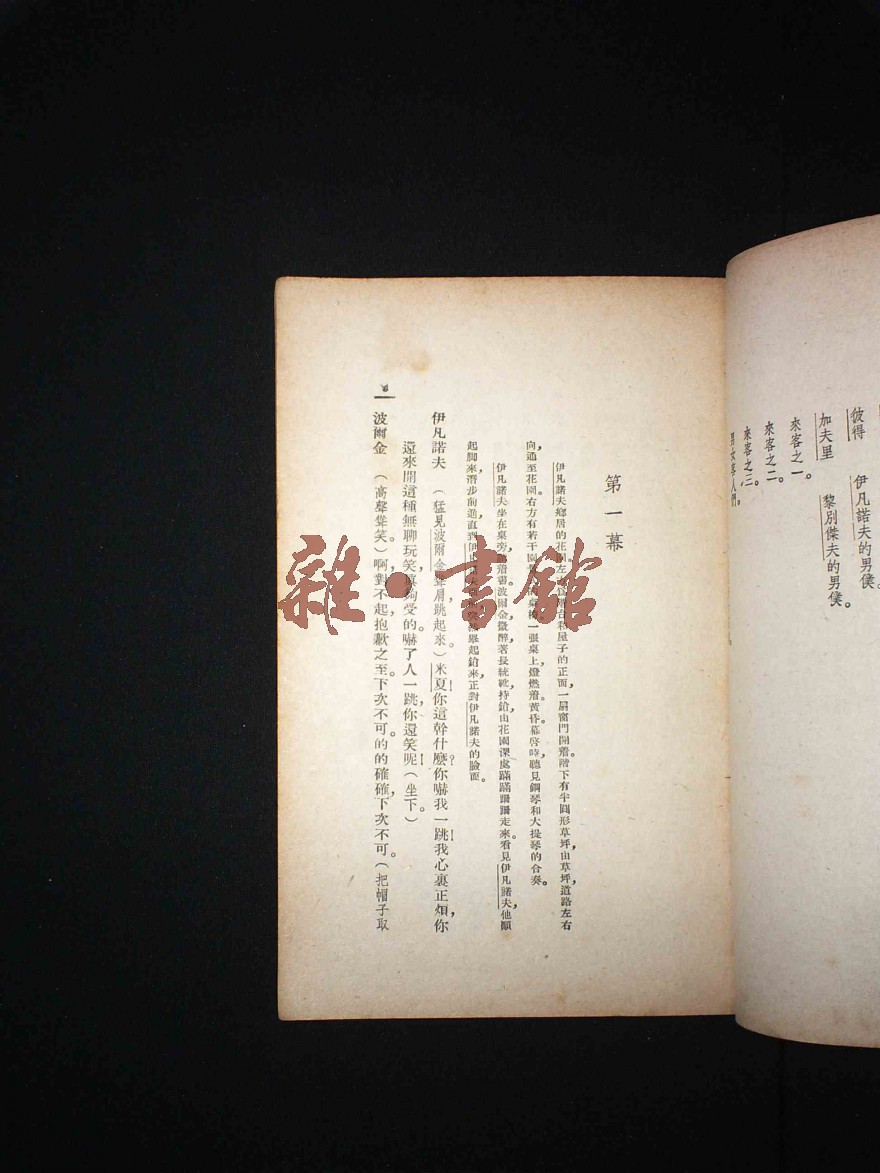 彼得　伊凡諾夫的男僕。
加夫里　黎別傑夫的男僕。
來客之一。
來客之二。
來客之三。
男女客人們。
第一幕
伊凡諾夫鄉居的花園左 台和屋子的正面，一扇窗門開着。階下有半圓形草坪，由草坪，道路左右
向，通至花園。右方有若干園 桌椅。一張桌上燈燃着。黃昏。幕啓時，聽見鋼琴和大提琴的合奏。
伊凡諾夫坐在桌旁， 着書。波爾金微醉，著長統靴，持鎗，由花園深處蹣蹣跚跚走來。看見伊凡諾夫，他顚
起脚來，潛步前進，直到伊凡諾夫 舉起鎗來，正對伊凡諾夫的臉面。
伊凡諾夫　（猛見波爾金，聳肩，跳起來。）米夏！你這幹什麽？你嚇我一跳！我心裏正煩，你
還來開這種無聊玩笑，真夠受的。嚇了人一跳，你還笑呢！（坐下。）
波爾金　（高聲聳笑）啊，對不起，抱歉之至。下次不可。的的確確，下次不可。（把帽子取
一
雜·書館